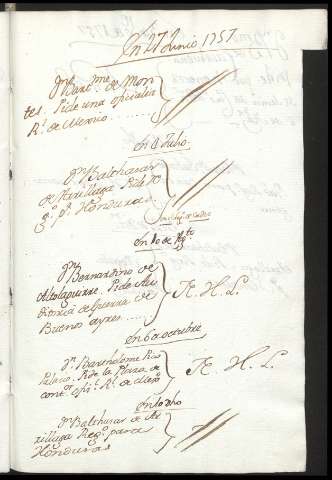 En 27 Junio 1757
Dn Bartme de Mon
tes. Pide una oficialia
Rl. de Mexico
en 4 Julio
Dn Balthasar
de Arilluga Pide
pa. Honduras
en 10 de Agto
Dn Bernardino de
Altolaguirre. Pide Au
ditoria de Guerra de
Buenos ayres
R. H. L.
en 6 octubre
Dn Barthólome Rio
Pide la Plaza de
contr. ofiz. Rl. de
R. H. L.
en 10 dho
Dn Balthasar de Ar
rilluga para
Honduras